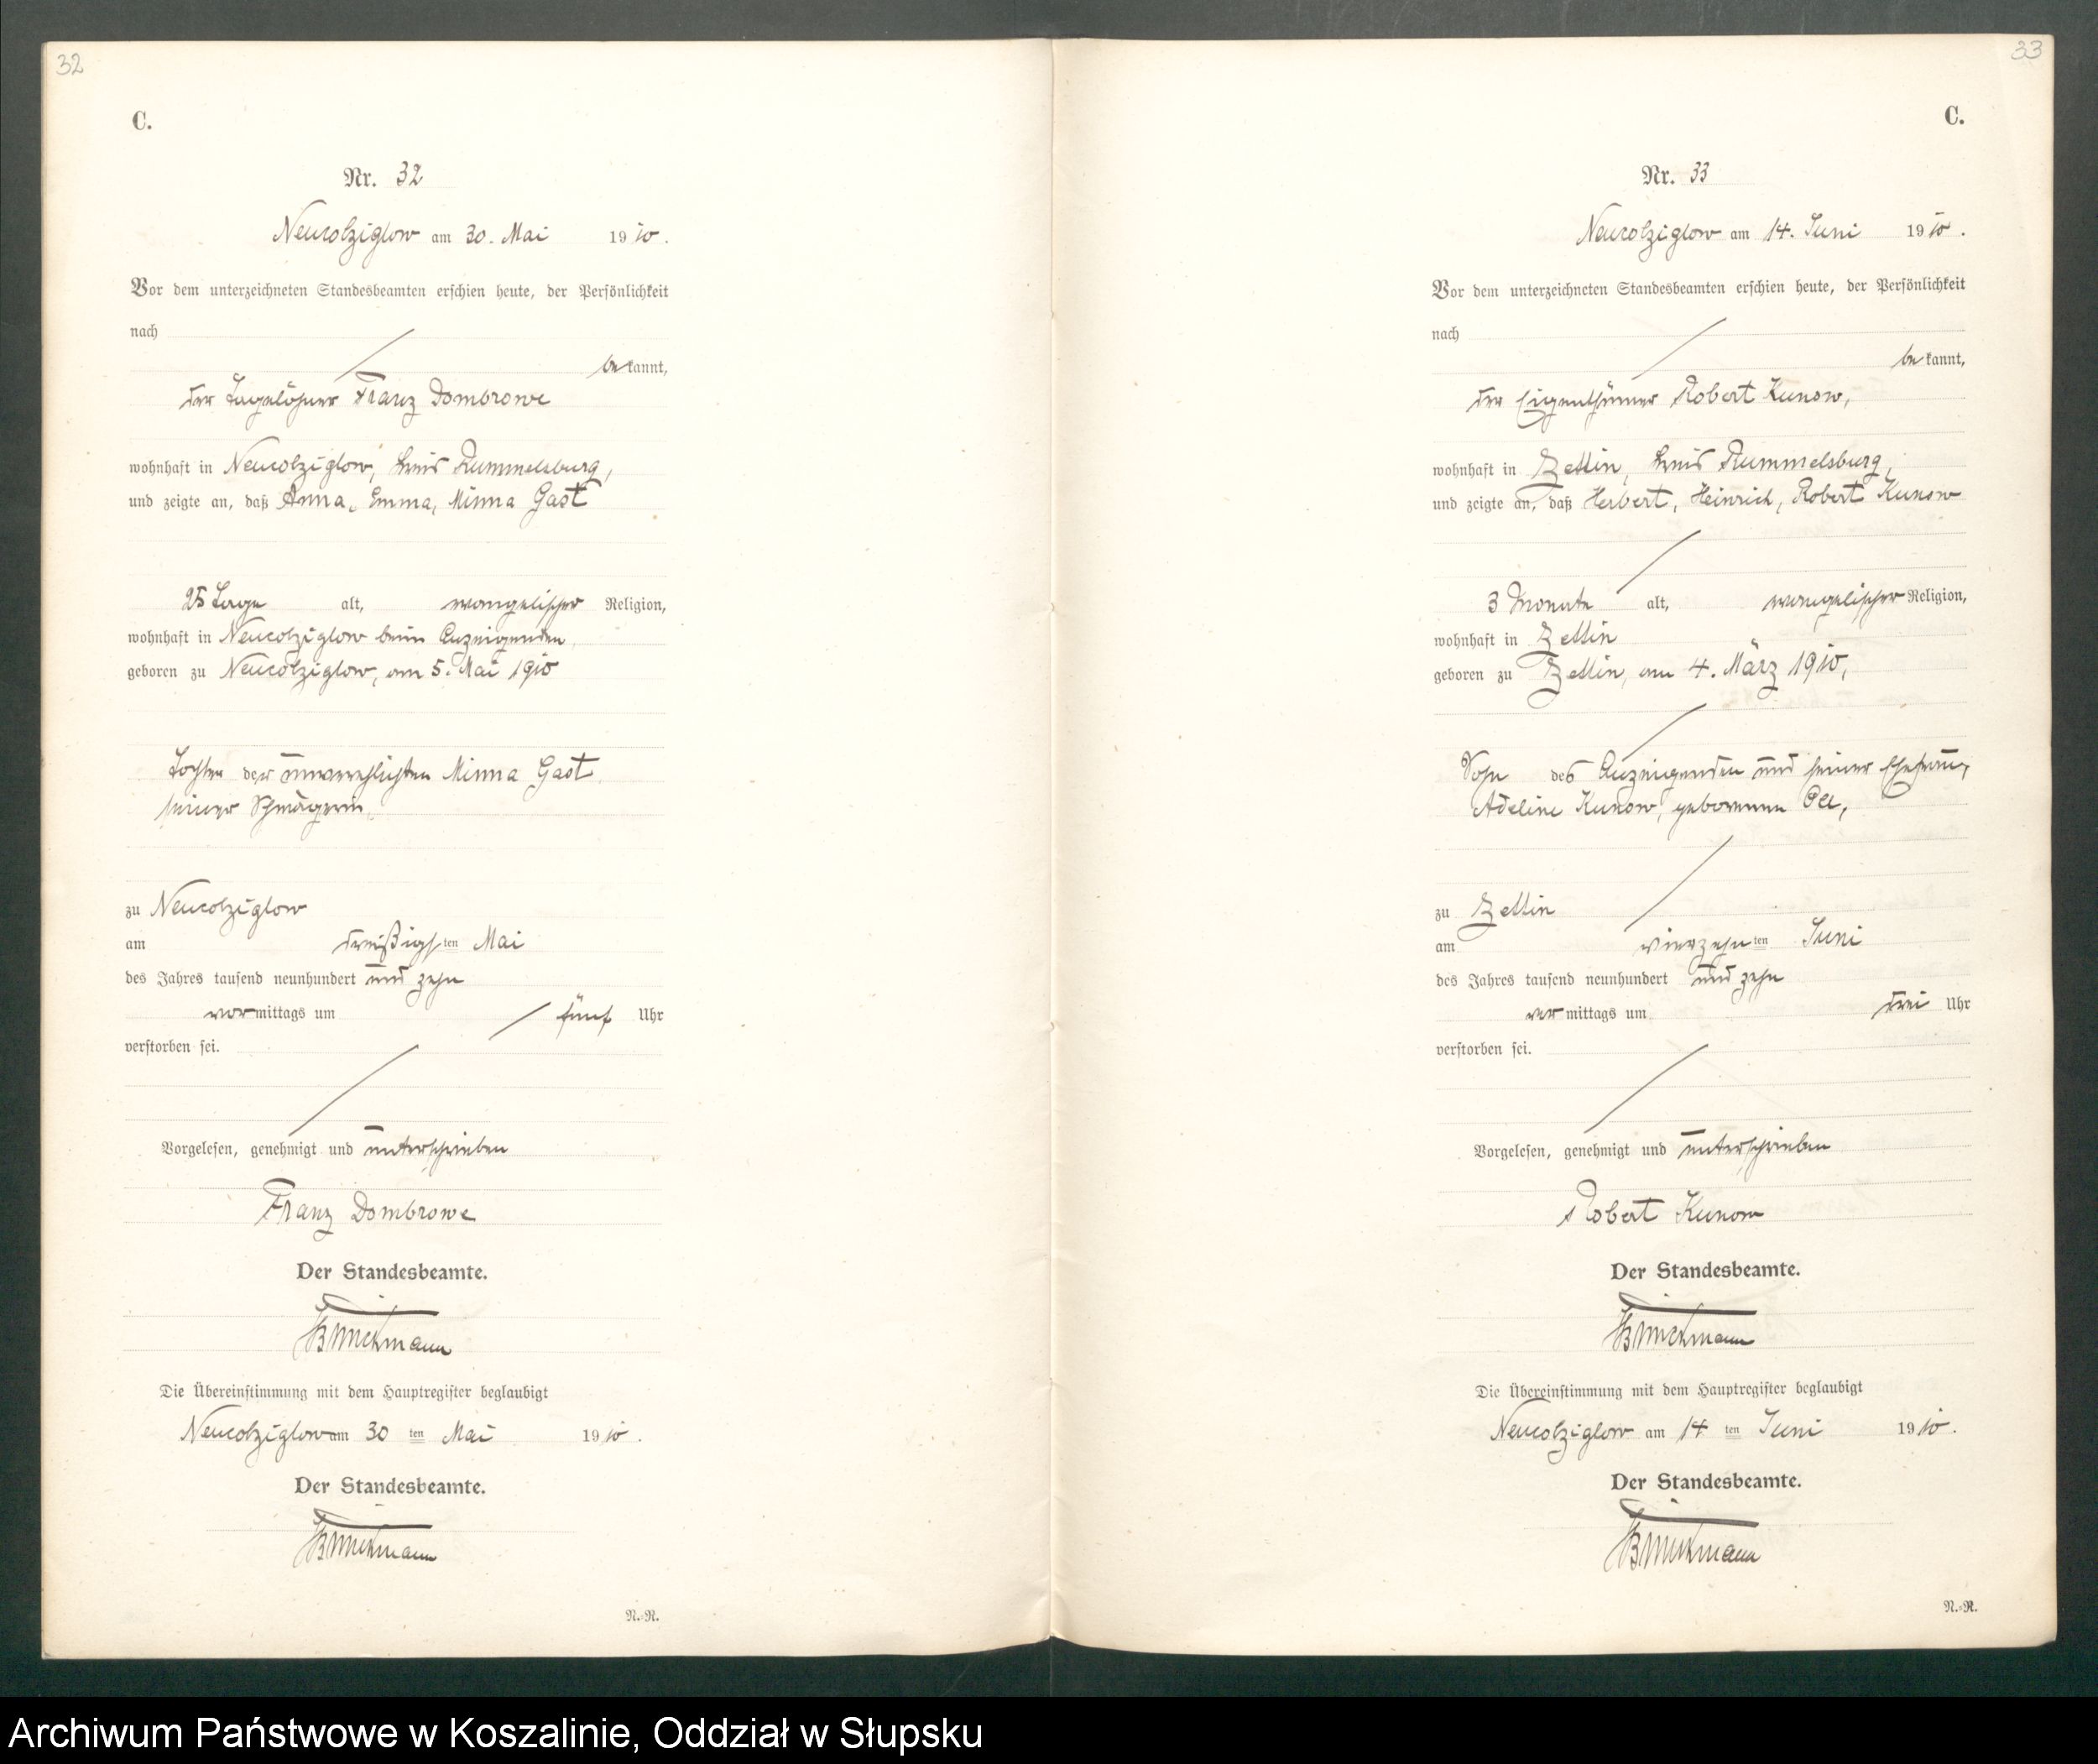 32
C.
Nr. 32
Neucolziglow am 30. Mai 1910.
Vor dem unterzeichneten Standesbeamten erschien heute, der Persönlichkeit
nach
bekannt,
der Tagelöhner Franz Dombrowe
wohnhaft in Neucolziglow, Kreis Rummelsburg,
und zeigte an, daß Anna, Emma, Minna Gast
25 Tage alt, evangelischer Religion,
wohnhaft in Neucolziglow beim Anzeigenden,
geboren zu Neucolziglow, am 5. Mai 1910
Tochter der unverehelichten Minna Gast,
seiner Schwägerin,
zu Neucolziglow
am dreißigsten Mai
des Jahres tausend neunhundert und zehn
vormittags um fünf Uhr
verstorben sei.
Vorgelesen, genehmigt und unterschrieben
Franz Dombrowe
Der Standesbeamte.
Die Übereinstimmung mit dem Hauptregister beglaubigt
Neucolziglow am 30 ten Mai 1910.
Der Standesbeamte.
N.-R.
33
C.
Nr. 33
Neucolziglow am 14. Juni 1910.
Vor dem unterzeichneten Standesbeamten erschien heute, der Persönlichkeit
nach
bekannt,
der Eigenthümer Robert Kunow,
wohnhaft in Zettin, Kreis Rummelsburg,
und zeigte an, daß Herbert, Heinrich, Robert Kunow
3 Monate alt, evangelischer Religion,
wohnhaft in Zettin
geboren zu Zettin, am 4. März 1910,
Sohn des Anzeigenden und seiner Ehefrau,
Adeline Kunow, geborenen
zu Zettin
am vierzehnten Juni
des Jahres tausend neunhundert und zehn
vormittags um drei Uhr
verstorben sei.
Vorgelesen, genehmigt und unterschrieben
Robert Kunow
Der Standesbeamte.
Die Übereinstimmung mit dem Hauptregister beglaubigt
Neucolziglow am 14 ten Juni 1910.
Der Standesbeamte.
N.-R.
Archiwum Państwowe w Koszalinie, Oddział w Słupsku